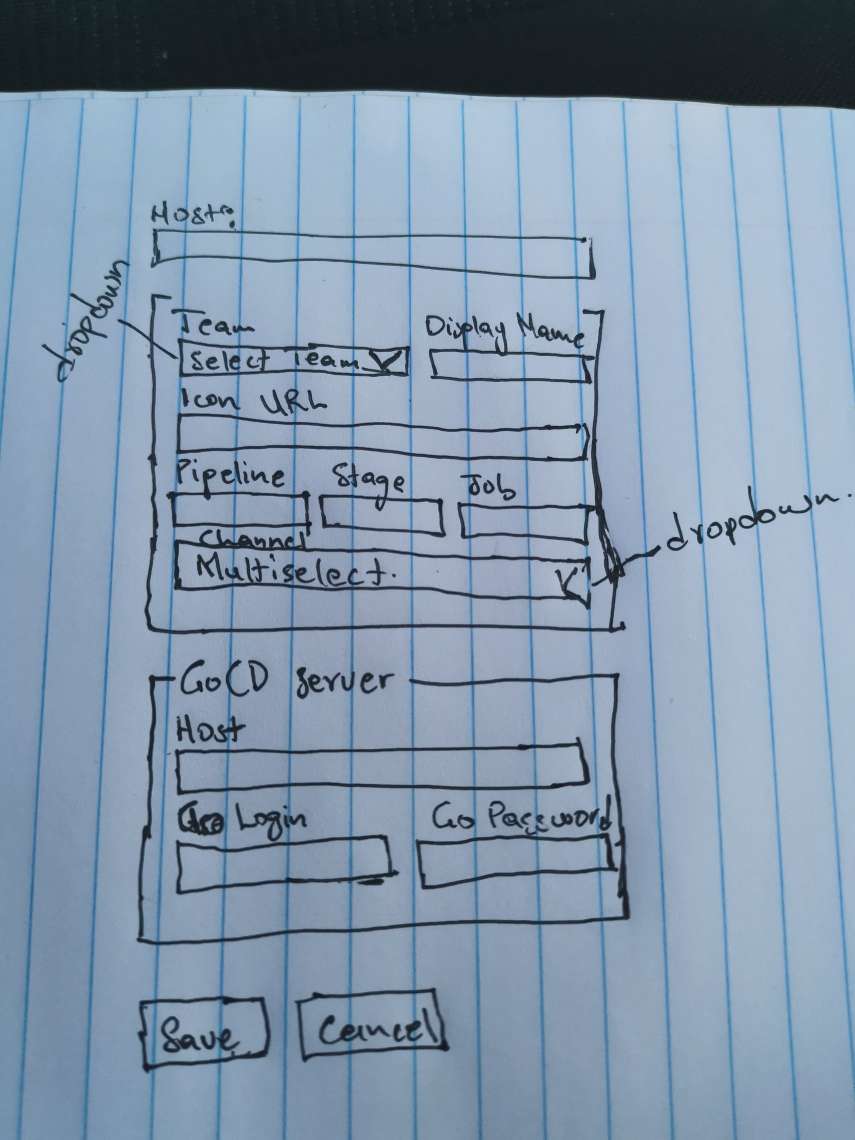 Host:
dropdown
Team
Display Name
Select Team
Icon URL
Pipeline
Stage
Job
Channel
Multiselect.
dropdown.
GoCD server
Host
Go Login
Go Password
Save
Cancel